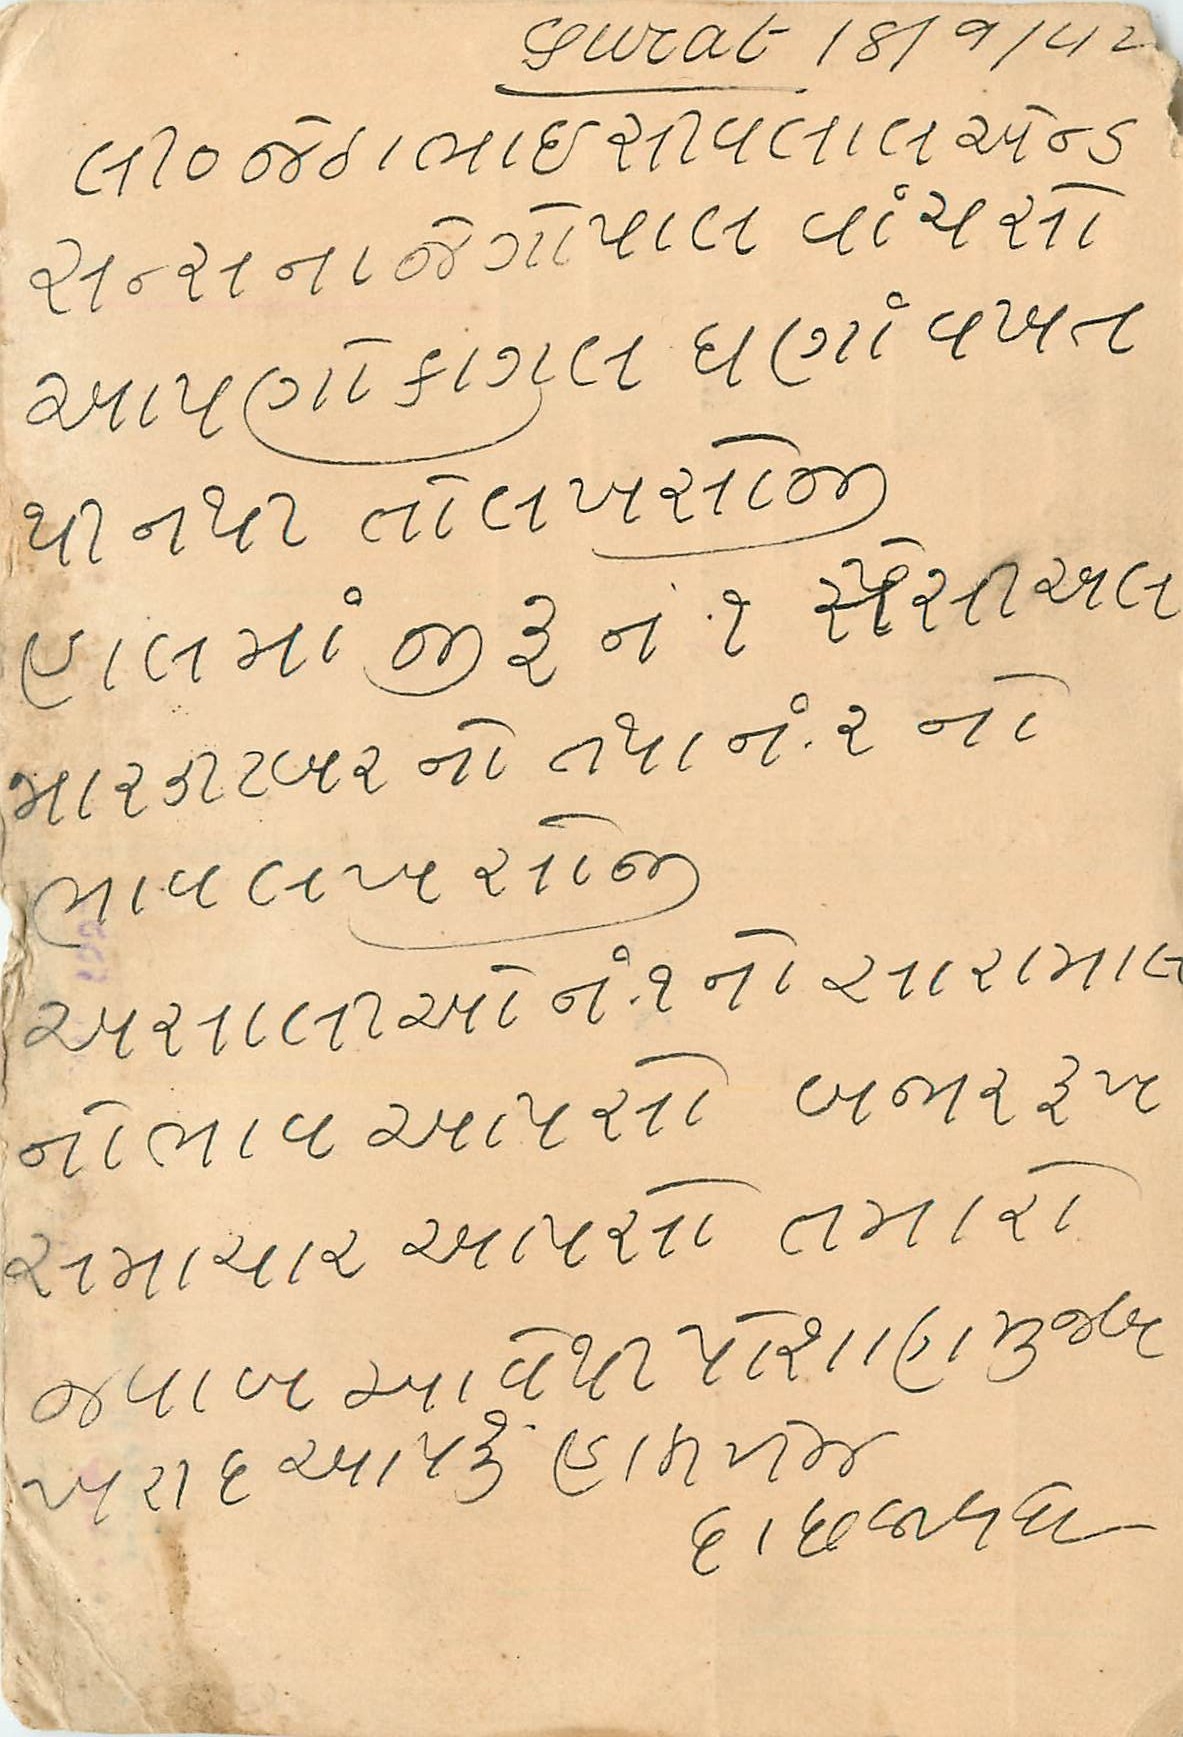 Surat 18/9/42
લી૦ જેઠાભાઈ શીવલાલ એન્ડ
સન્સ ના જેગોપાલ વાંચશો
આપણો કાગલ ઘણાં વખત
થી નથી તો લખશોજી
હાલમાં જીરૂ નં. ૧ સ્પેશીઅલ
મારકીટ પર નો તથા નં. ૨ નો
ભાવ લખશોજી
અશાલીઓ નં. ૧ નો સારા માલ
નો ભાવ આપશો બજાર રૂખ
સમાચાર આપશો તમારો
જવાબ આવેથી પોશાણ મુજબ
ખરીદ આપશું
દ।